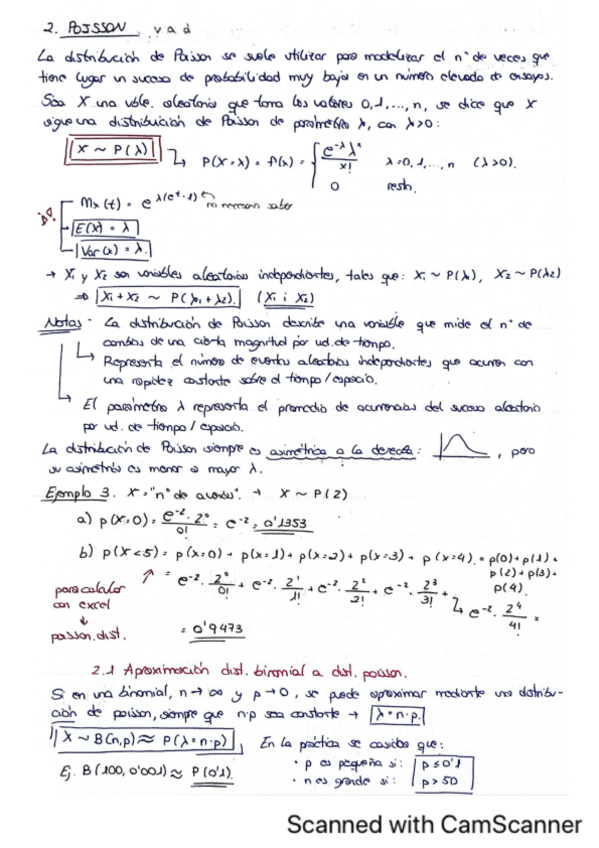 2. POISSON. v a d
La distribución de Poisson se suele utilizar para modelizar el nº de veces que
tiene lugar un suceso de probabilidad muy baja en un número elevado de ensayos.
Sea X una vble. aleatoria que toma los valores 0,1,...,n, se dice que X
sigue una distribución de Poisson de parámetro λ, con λ>0:
X ~ P(λ) ↳ P(X=x) = f(x) = { e^-λ λ^x / x! λ=0,1,...,n (λ>0).
0 resto.
Mx(t) = e^λ(e^t-1) no necesario saber
E(X) = λ
Var(x) = λ.
→ X1 y X2 son variables aleatorias independientes, tales que: X1 ~ P(λ1), X2 ~ P(λ2)
⇒ X1+X2 ~ P(λ1+λ2). (X1 i X2)
Notas - La distribución de Poisson describe una variable que mide el nº de
cambios de una cierta magnitud por ud. de tiempo.
↳ Representa el número de eventos aleatorios independientes que ocurren con
una rapidez constante sobre el tiempo/espacio.
↳ El parámetro λ representa el promedio de ocurrencias del suceso aleatorio
por ud. de tiempo / espacio.
La distribución de Poisson siempre es asimétrica a la derecha: , pero
su asimetría es menor a mayor λ.
Ejemplo 3. X="nº de". → X ~ P(2)
a) p(X=0) = e^-2 · 2^0 / 0! = e^-2 = 0'1353
b) p(X<5) = p(x=0) + p(x=1) + p(x=2) + p(x=3) + p(x=4) = p(0)+p(1)+
p(2)+p(3)+
p(4).
= e^-2 · 2^0/0! + e^-2 · 2^1/1! + e^-2 · 2^2/2! + e^-2 · 2^3/3! + ↳ e^-2 · 2^4/4! =
para calcular
con excel
↓
poisson.dist.
= 0'9473
2.1 Aproximación dist. binomial a dist. poisson.
Si en una binomial, n→∞ y p→0, se puede aproximar mediante una distribu-
ción de poisson, siempre que n·p sea constante → λ=n·p.
X ~ B(n,p) ≈ P(λ=n·p) En la práctica se considera que:
Ej. B(100, 0'001) ≈ P(0'1).
· p es pequeña si: p≤0'1
· n es grande si: p>50
Scanned with CamScanner